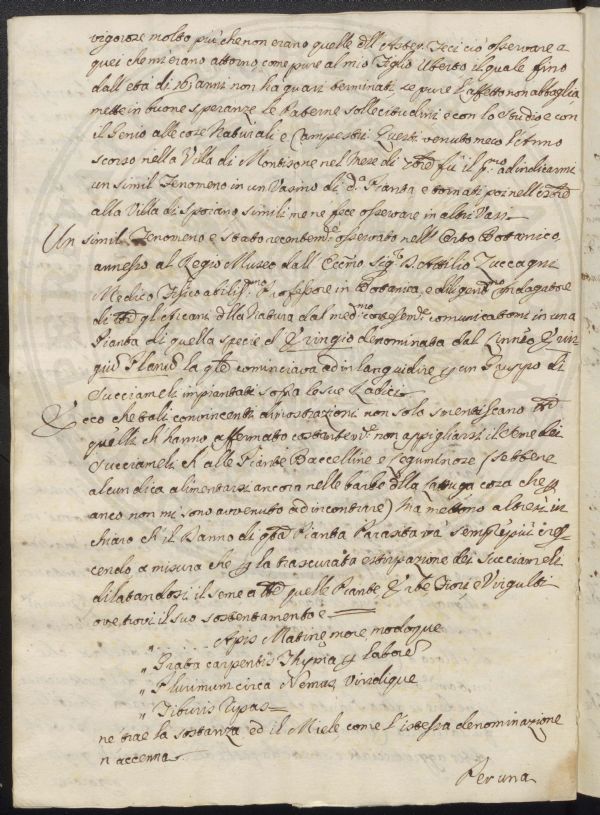 vigorose molto più che non erano quelle dell' Aster. Feci ciò osservare a
quei che m'erano attorno, come pure al mio Figlio Uberto il quale fino
dall'età di 16 anni non ha quasi terminati se pure l'affetto non abbaglia,
mette in buone speranze le Paterne sollecitudini e con lo studio e con
il Genio alle cose Naturali e Campestri. Questi venuto meco l'Anno
scorso nella Villa di Montisone nel Mese di fù il p.mo ad indicarmi
un simil Fenomeno in un Vasino di d.a Pianta e tornati poi nell'
alla Villa di Spoiano simili me ne fece osservare in altri Vasi.
Un simil Fenomeno è stato recentem.e osservato nell'Orto Botanico
annesso al Regio Museo dall'Ecc.mo Sig.r D. Attilio Zuccagni
Medico Fisico abiliss.mo Professore in Botanica, e diligent.mo Indagatore
di gl'arcani d'lla Natura dal med.mo cortesem.e comunicatomi in una
Pianta di quella specie d'Eringio denominata dal Linneo Erin-
gium Planum la q.le cominciava ad inlanguidire p un Gruppo di
Succiameli impiantati sopra le sue Radici.
Ecco che tali convincenti dimostrazioni non solo smentiscano
quelli ch'hanno affermato costantem.e non appigliarsi il seme dei
Succiameli ch'alle Piante Baccelline e Leguminose (sebbene
alcun dica alimentarsi ancora nelle barbe d'lla Lattuga cosa che p
anco non mi sono avvenuto ad incontrare) ma mettono altresì in
chiaro ch'il Danno di q.ta Pianta Parasita và semp.e più cres-
cendo a misura che p la trascurata estirpazione dei Succiameli
dilatandosi il seme a quelle Piante Erbe Fiori e Virgulti
ove trovi il suo sostentamento e
„ Apis Matinæ more, modoque
„ Grata carpentis Thyma p labore
„ Plurimum circa Nemus, Uvidique
„ Tiburis Ripas
ne trae la sostanza ed il Miele come l'istessa denominazione
n'accenna.
Per una